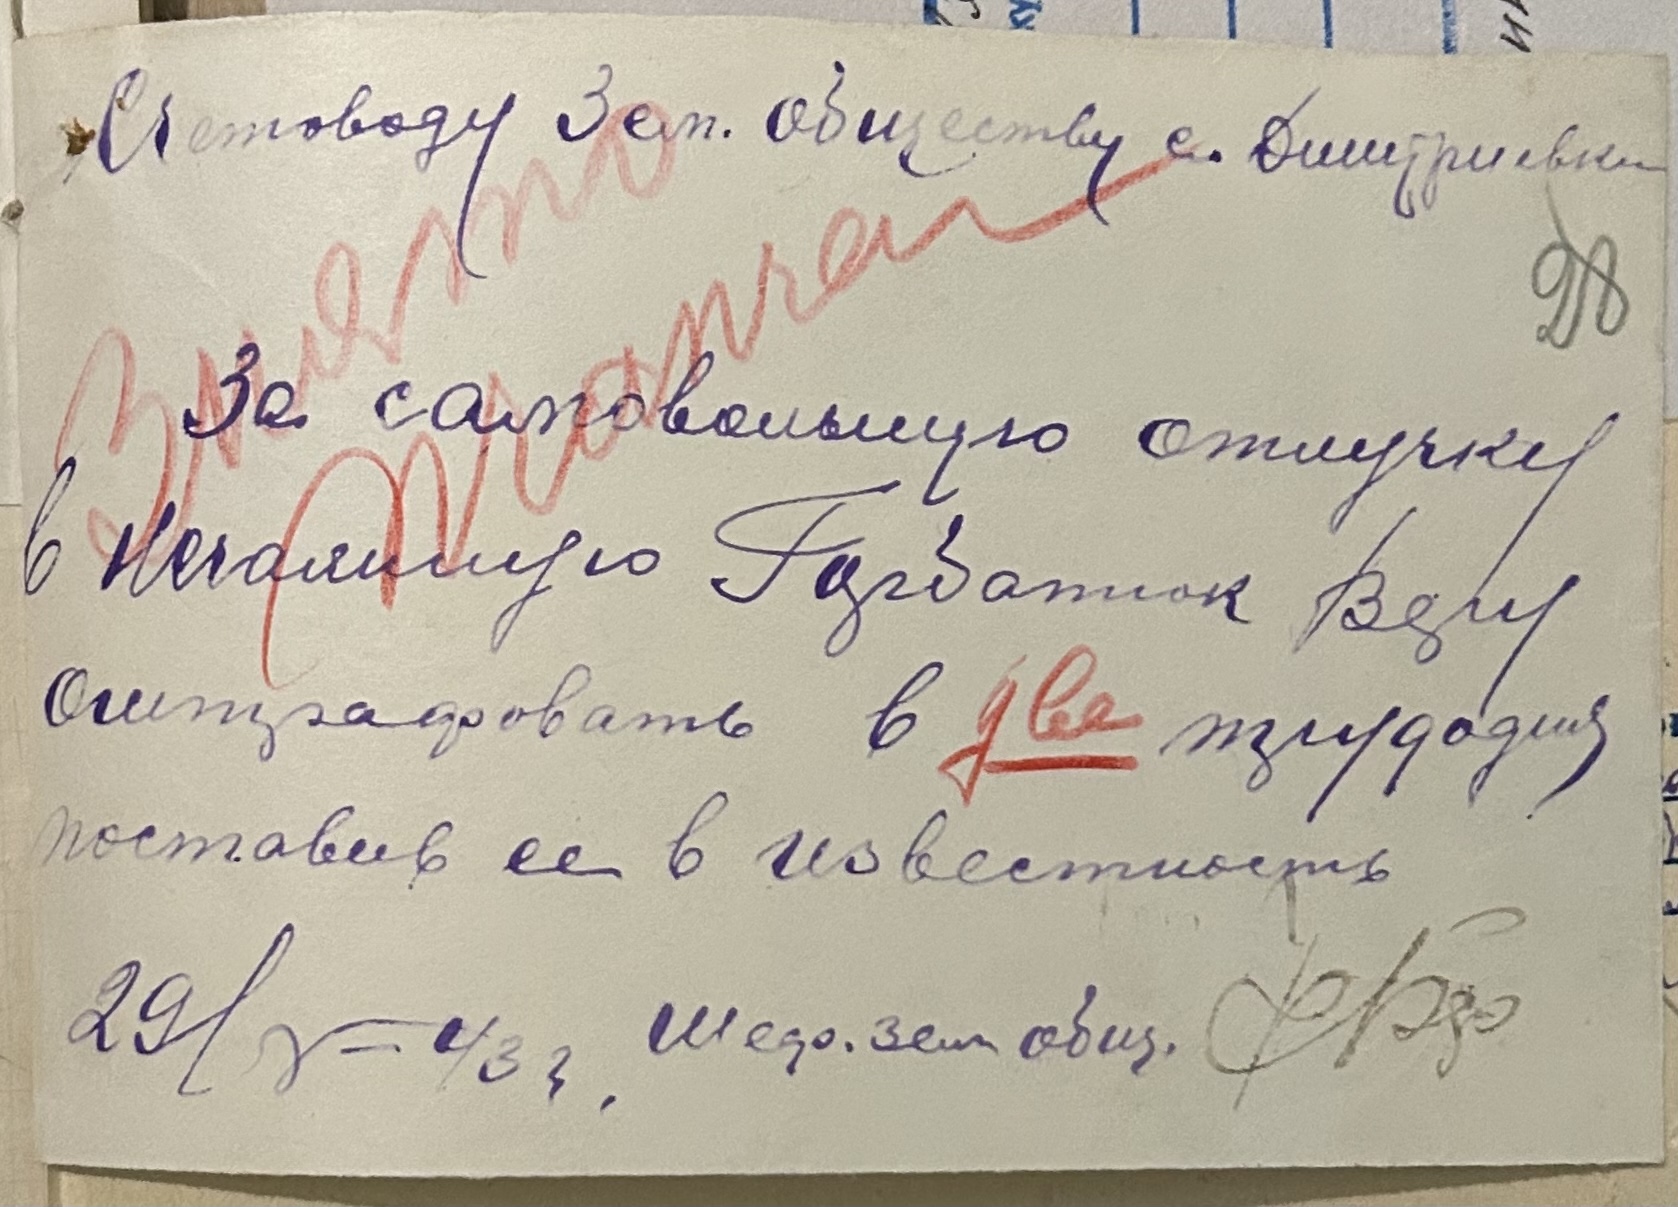 Счетоводу Зем. обществу с. Дмитриевки
28
За самовольную отлучку
в Нечаянную Горбатюк Веру
оштрафовать в две трудодня
поставив ее в известность
29/V–43 г. Шеф. зем общ.
Снято